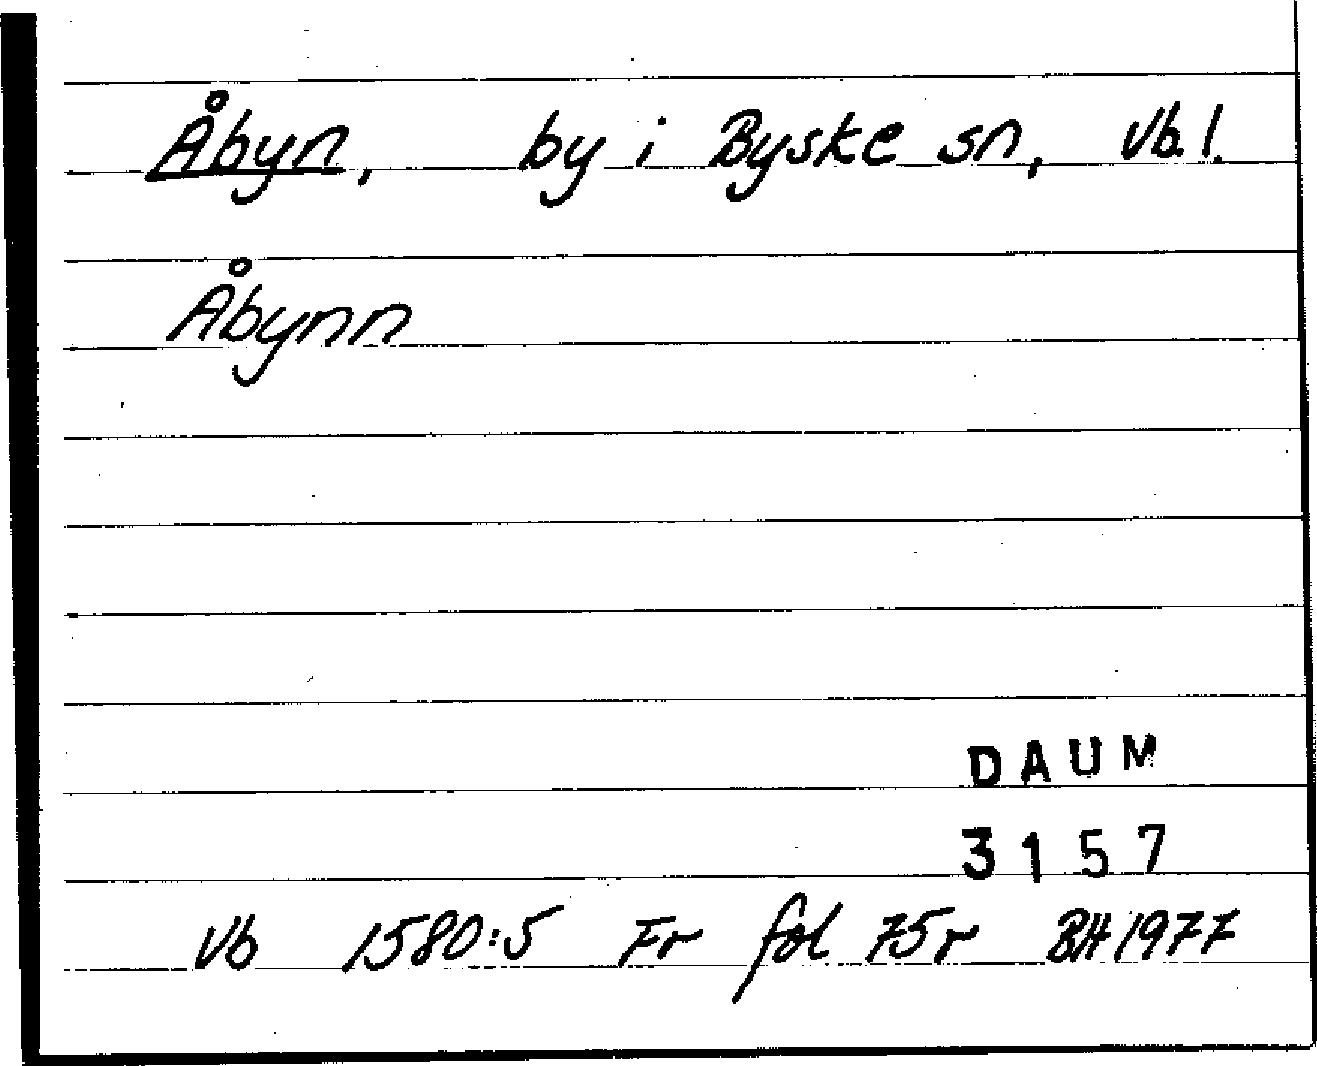 Åbyn, by i Byske sn, Vb. l.
Åbynn
DAUM
3157
Vb 1580:5 Fr fol 75r BH 1977